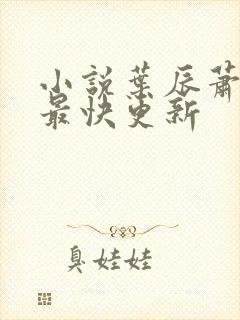 小說葉辰蕭
最快更新
臭娃娃